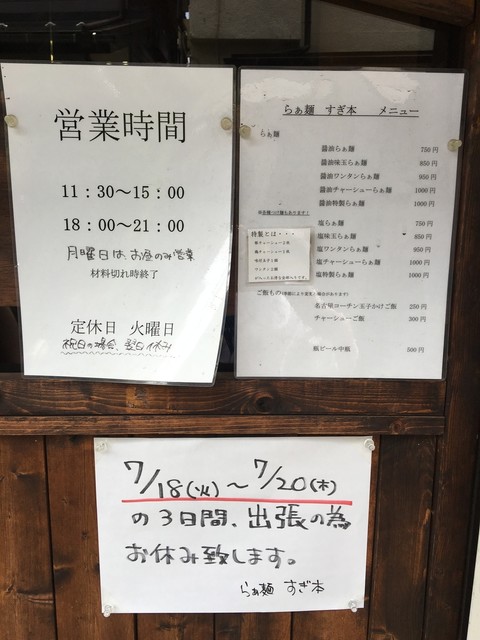 営業時間
11：30～15：00
18：00～21：00
月曜日は、お昼のみ営業
材料切れ時終了
定休日　火曜日
祝日の場合、翌日休み
らぁ麺　すぎ本　メニュー
らぁ麺
醤油らぁ麺　750円
醤油味玉らぁ麺　850円
醤油ワンタンらぁ麺　950円
醤油チャーシューらぁ麺　1000円
醤油特製らぁ麺　1000円
塩らぁ麺　750円
塩味玉らぁ麺　850円
塩ワンタンらぁ麺　950円
塩チャーシューらぁ麺　1000円
塩特製らぁ麺　1000円
特製とは・・・
ご飯もの
名古屋コーチン玉子かけご飯　250円
チャーシューご飯　300円
瓶ビール中瓶　500円
7/18(火)～7/20(木)
の3日間、出張の為
お休み致します。
らぁ麺　すぎ本